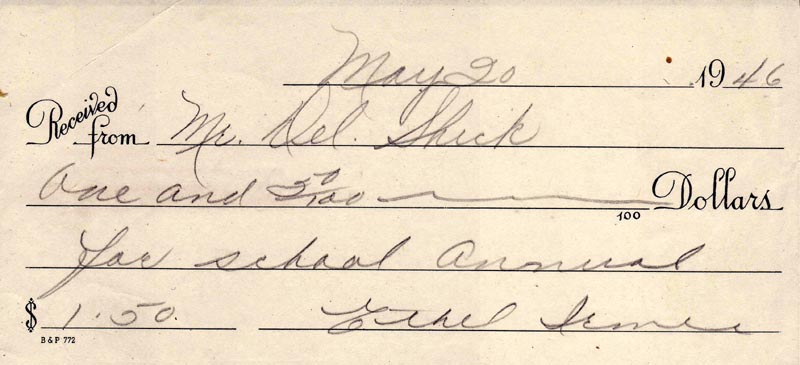 May 20 1946
Received from Mr. Del. Shick
One and 50/100 100 Dollars
for school Annual
$ 1.50. Ethel
B & P 772